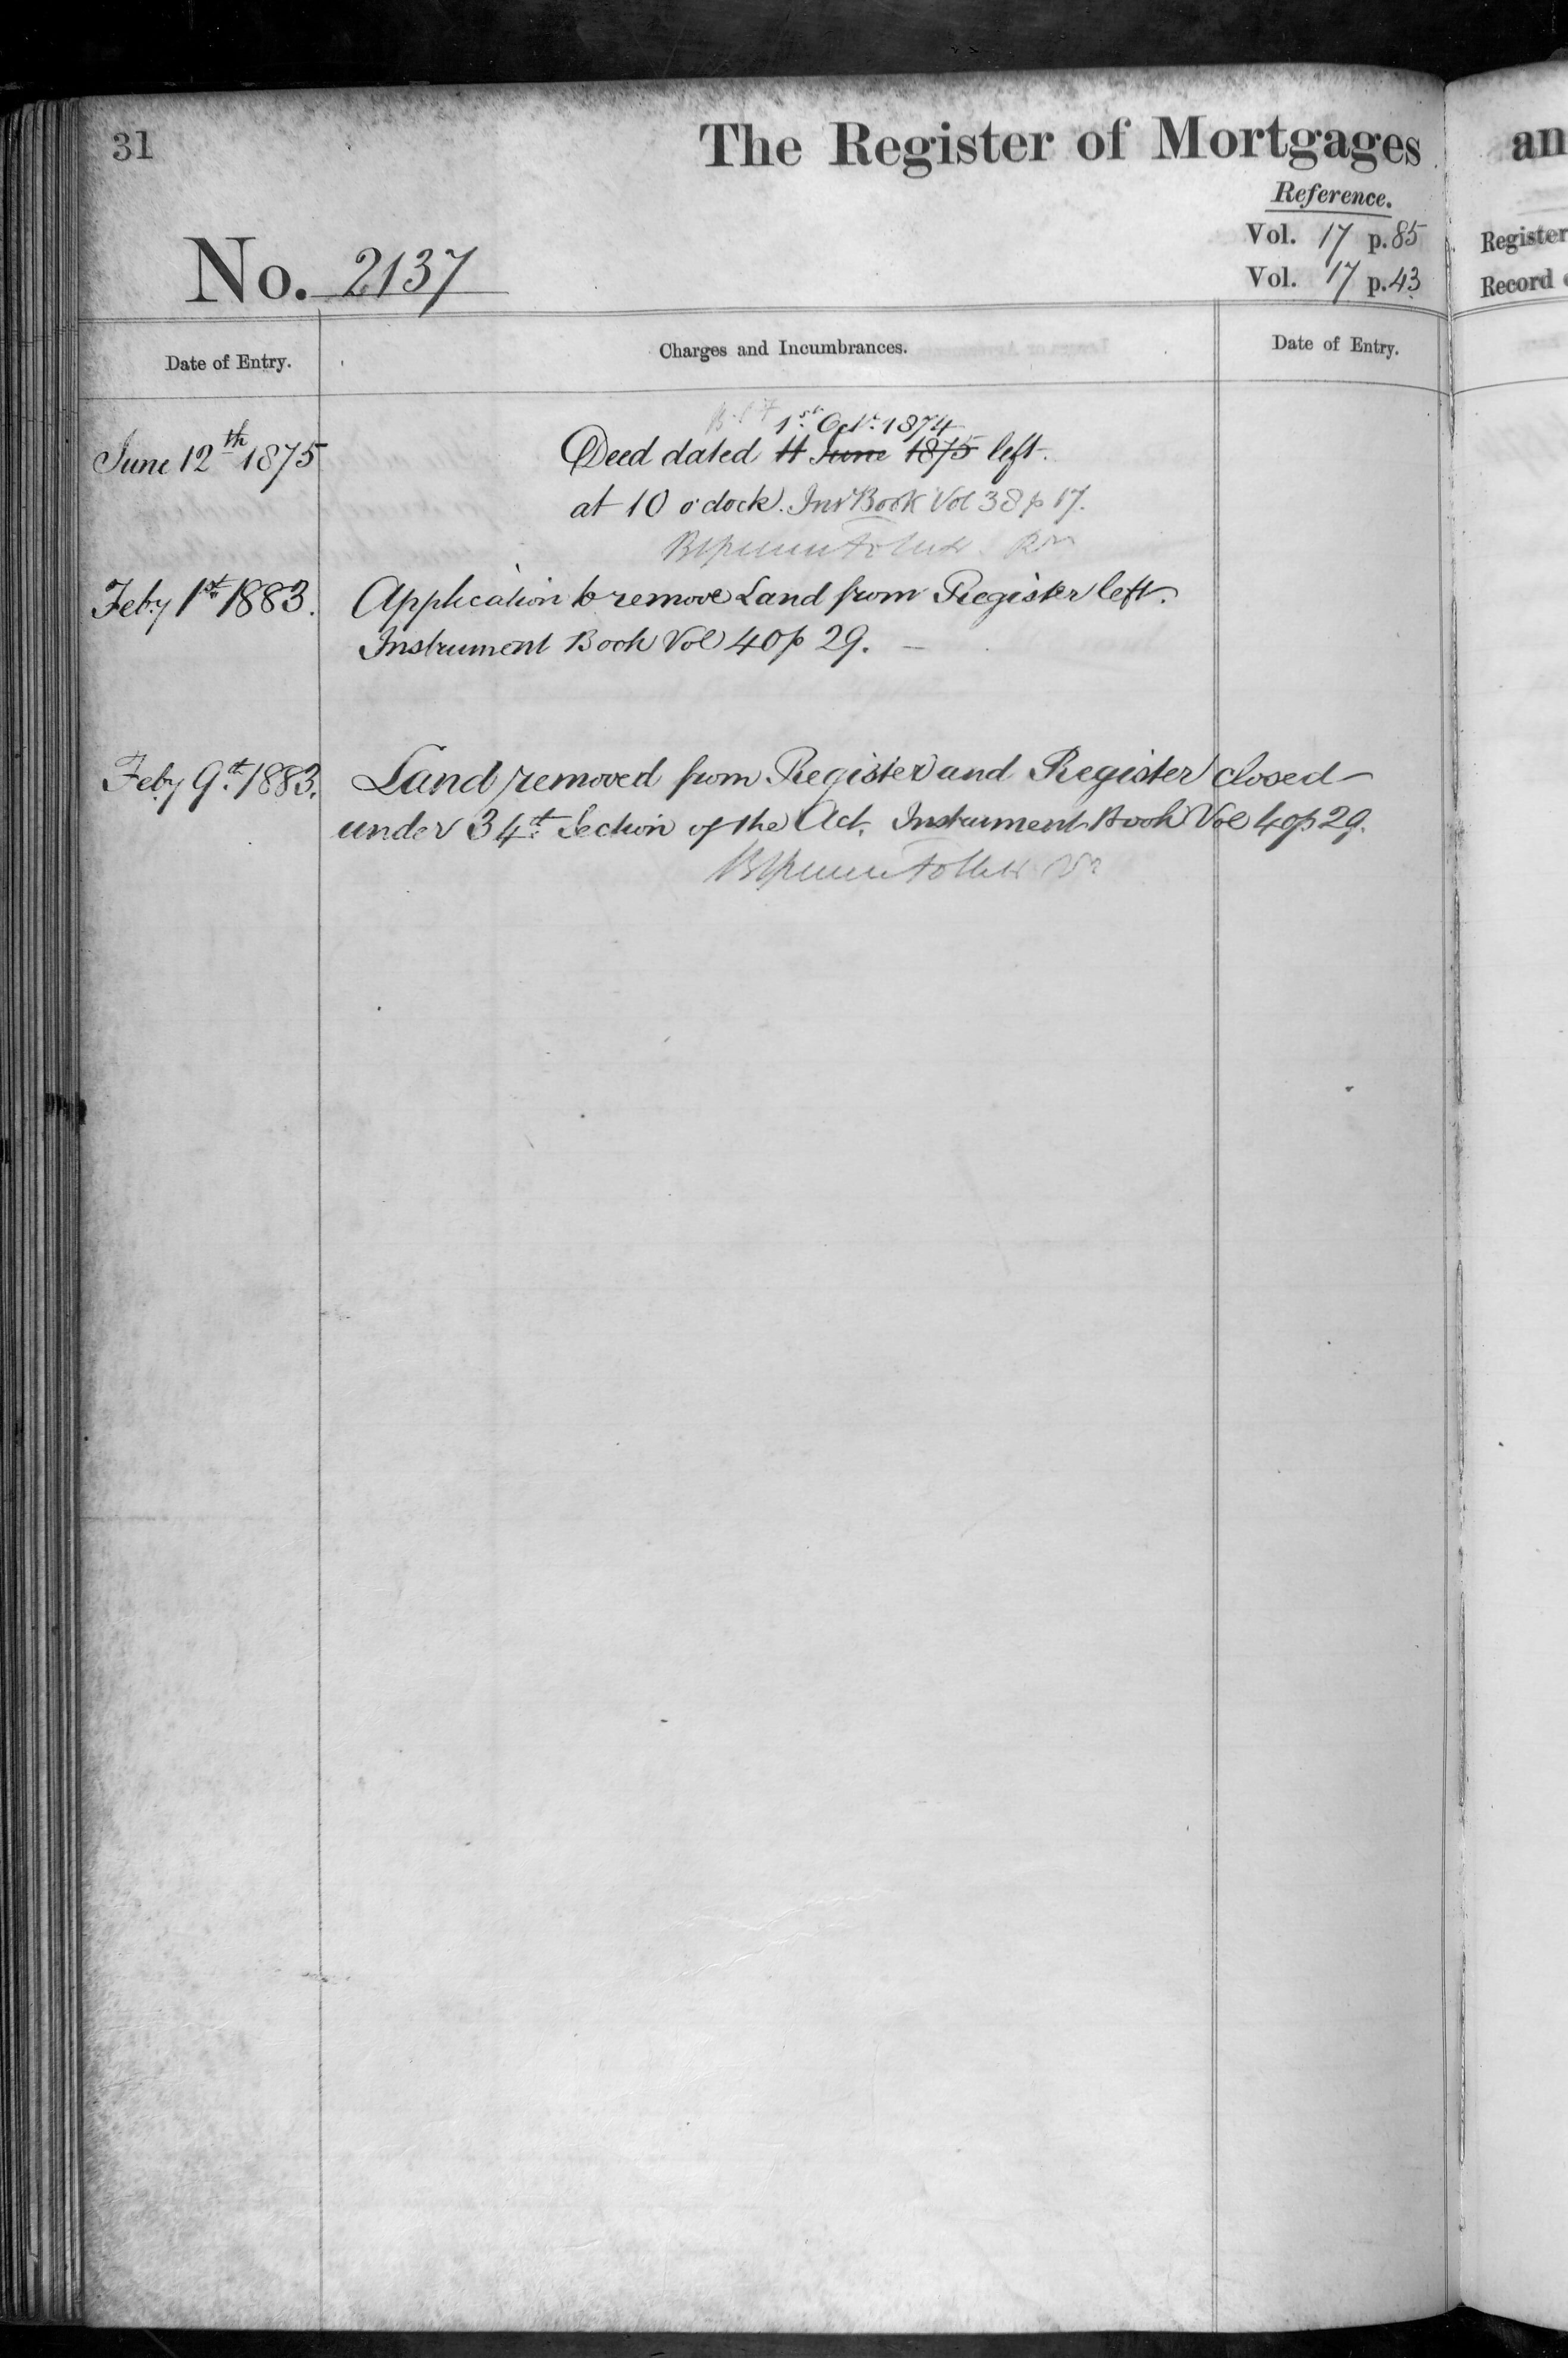 31
The Register of Mortgages
an
Reference.
Vol. 17 p. 85
Register
Vol. 17 p. 43
Record
No. 2137
Date of Entry.
Charges and Incumbrances.
Date of Entry.
1st Oct. 1874
June 12th 1875
Deed dated 11 June 1875 left.
at 10 o'clock. Inst Book Vol 38 p 17.
Feby 1st 1883.
Application to remove Land from Register left.
Instrument Book Vol 40 p 29. —
Feby 9th 1883.
Land removed from Register and Register closed
under 34th Section of the Act. Instrument Book Vol 40 p 29.